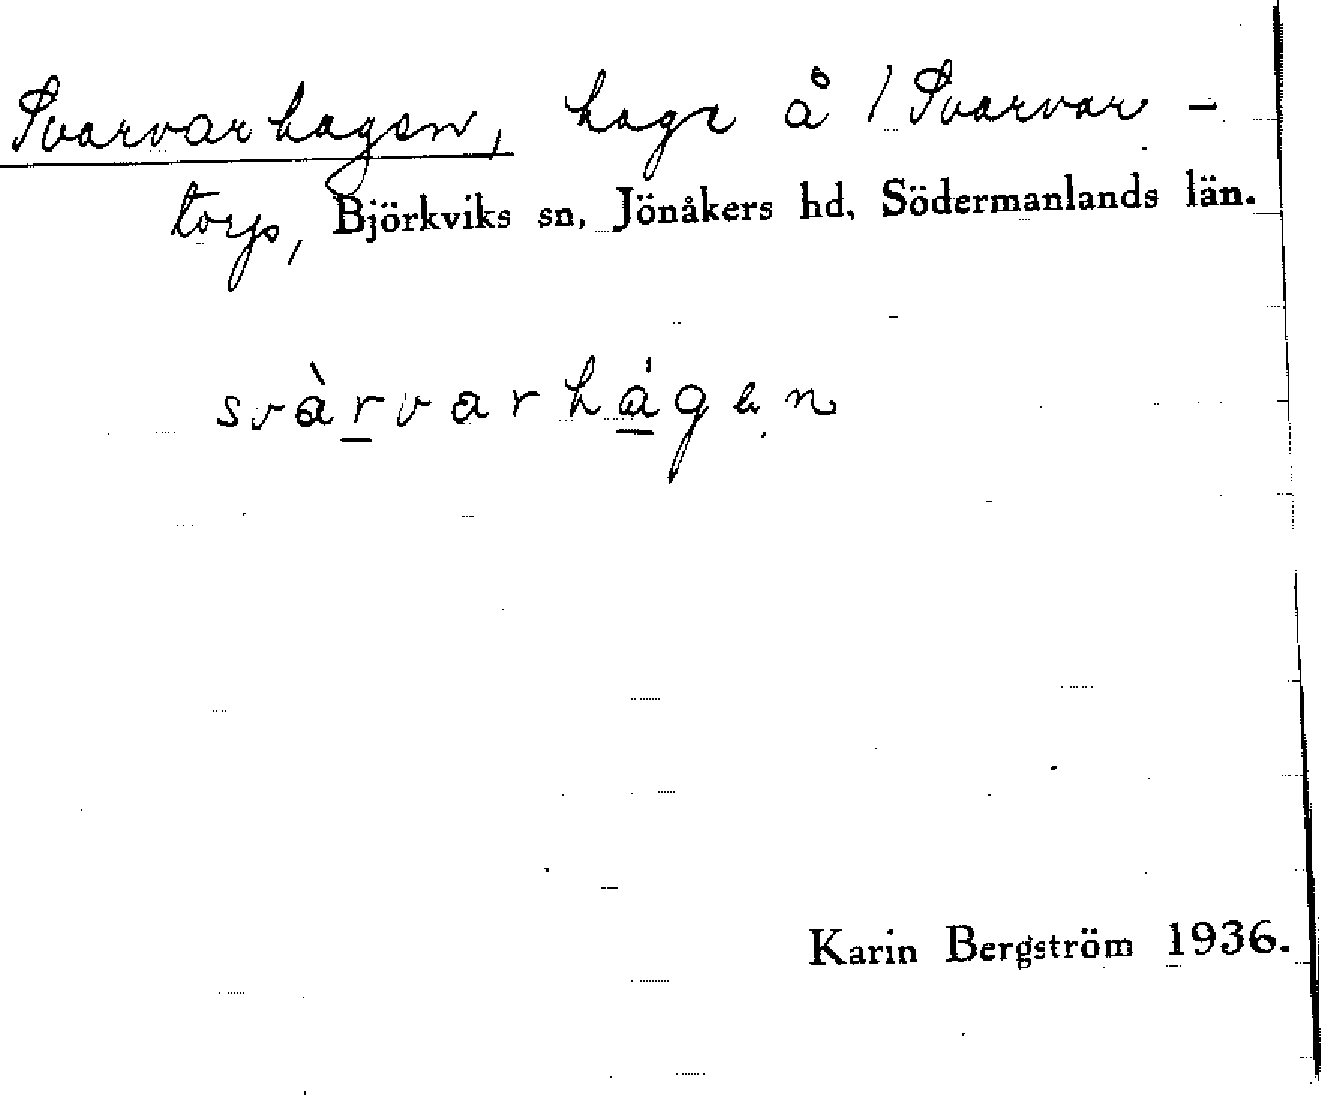 Svarvarhagen, hage å / Svarvar-
torp, Björkviks sn, Jönåkers hd, Södermanlands län.
svàrvarhágen
Karin Bergström 1936.